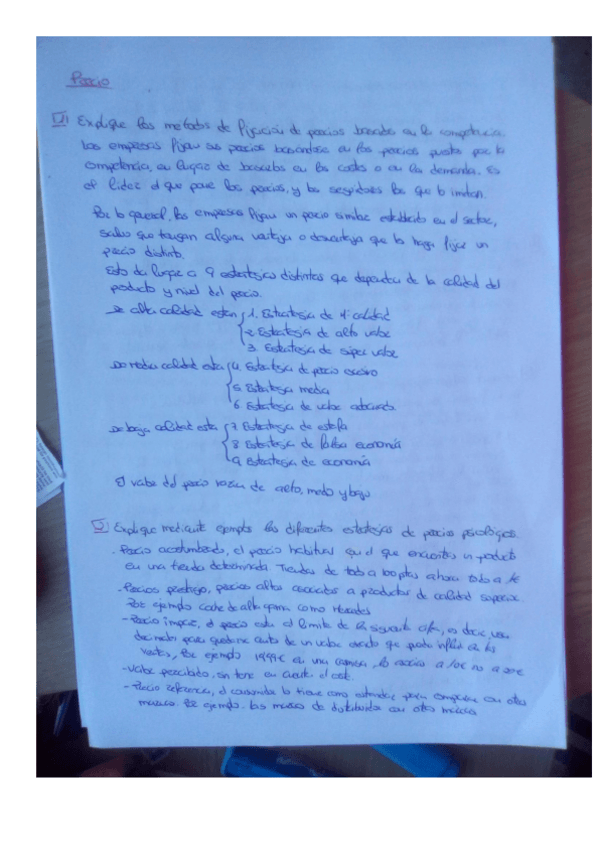 Precio
1 Explique los métodos de fijación de precios basados en la competencia.
Las empresas fijan sus precios basándose en los precios puestos por la
competencia, en lugar de basarlos en los costes o en la demanda. Es
el lider el que pone los precios, y los seguidores los que lo imitan.
Por lo general, las empresas fijan un precio similar establecido en el sector,
salvo que tengan alguna ventaja o desventaja que lo haga fijar un
precio distinto.
Esto da lugar a 9 estrategias distintas que dependen de la calidad del
producto y nivel del precio.
De alta calidad están 1. Estrategia de 1ª calidad
2 Estrategia de alto valor
3. Estrategia de súper valor
De media calidad esta 4. Estrategia de precio excesivo
5 Estrategia media
6 Estrategia de valor
De baja calidad esta 7 Estrategia de estafa
8 Estrategia de falsa economía
9 Estrategia de economía
El valor del precio varían de alto, medio y bajo
Explique mediante ejemplo las diferentes estrategias de precios psicológicos.
- Precio acostumbrado, el precio habitual en el que encuentras un producto
en una tienda determinada. Tiendas de todo a 100 ptas ahora todo a 1€
- Precios prestigio, precios altos asociados a productos de calidad superior.
Por ejemplo coche de alta gama como Mercedes
- Precio impar, el precio esta al limite de la siguiente cifra, es decir, usa
decimales para quedarse cerca de un valor que puede influir en las
ventas, Por ejemplo 19,99€ en una camisa, lo asocias a 10€ no a 20€
- Valor percibido, sin tener en cuenta el coste.
- Precio referencia, el consumidor lo tiene como estimado para comparar con otras
marcas. Por ejemplo. las marcas de distribuidor con otras marcas